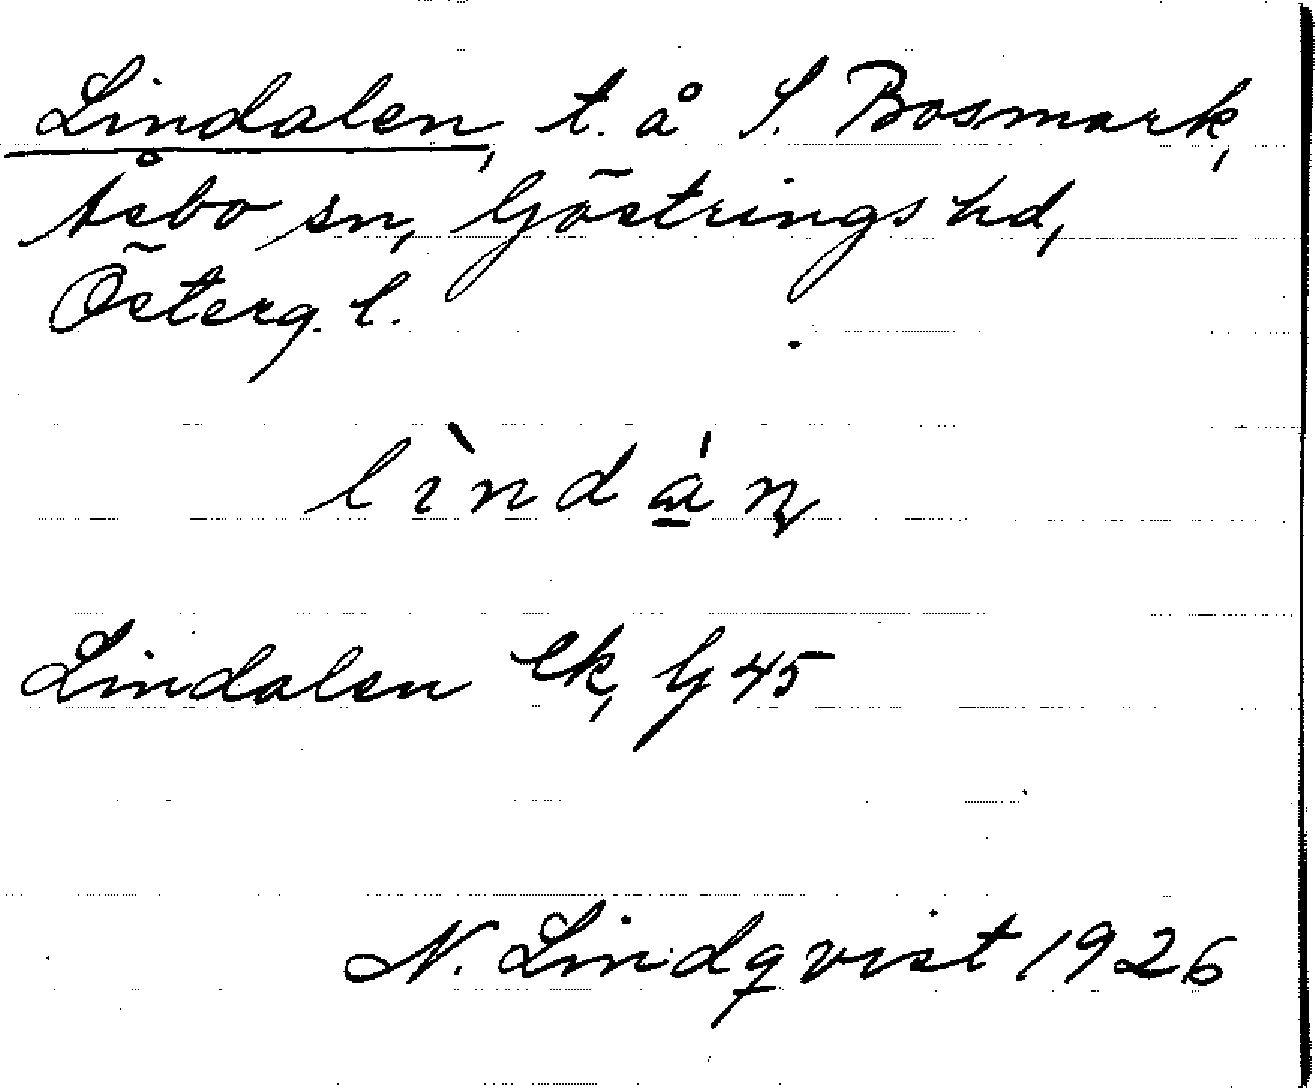 Lindalen, t. å S. Bosmark,
Åsbo sn, Göstrings hd,
Österg. l.
lìndán
Lindalen ek, G 45
N. Lindqvist 1926